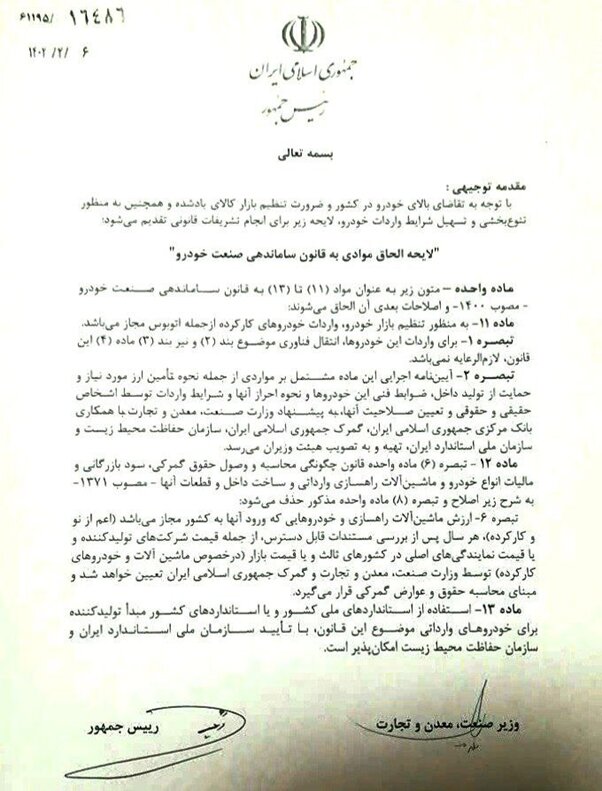 ۶۱۱۹۵/ ۱۶۴۸۶
۱۴۰۲/ ۲/ ۶
جمهوری اسلامی ایران
رئیس جمهور
بسمه تعالی
مقدمه توجیهی :
با توجه به تقاضای بالای خودرو در کشور و ضرورت تنظیم بازار کالای یادشده و همچنین به منظور
تنوع‌بخشی و تسهیل شرایط واردات خودرو، لایحه زیر برای انجام تشریفات قانونی تقدیم می‌شود:
"لایحه الحاق موادی به قانون ساماندهی صنعت خودرو"
ماده واحده – متون زیر به عنوان مواد (۱۱) تا (۱۳) به قانون ساماندهی صنعت خودرو
- مصوب ۱۴۰۰- و اصلاحات بعدی آن الحاق می‌شوند:
ماده ۱۱- به منظور تنظیم بازار خودرو، واردات خودروهای کارکرده ازجمله اتوبوس مجاز می‌باشد.
تبصره ۱- برای واردات این خودروها، انتقال فناوری موضوع بند (۲) و نیز بند (۳) ماده (۴) این
قانون، لازم‌الرعایه نمی‌باشد.
تبصره ۲- آیین‌نامه اجرایی این ماده مشتمل بر مواردی از جمله نحوه تأمین ارز مورد نیاز و
حمایت از تولید داخل، ضوابط فنی این خودروها و نحوه احراز آنها و شرایط واردات توسط اشخاص
حقیقی و حقوقی و تعیین صلاحیت آنها، به پیشنهاد وزارت صنعت، معدن و تجارت با همکاری
بانک مرکزی جمهوری اسلامی ایران، گمرک جمهوری اسلامی ایران، سازمان حفاظت محیط زیست و
سازمان ملی استاندارد ایران، تهیه و به تصویب هیئت وزیران می‌رسد.
ماده ۱۲ - تبصره (۶) ماده واحده قانون چگونگی محاسبه و وصول حقوق گمرکی، سود بازرگانی و
مالیات انواع خودرو و ماشین‌آلات راهسازی وارداتی و ساخت داخل و قطعات آنها - مصوب ۱۳۷۱-
به شرح زیر اصلاح و تبصره (۸) ماده واحده مذکور حذف می‌شود:
تبصره ۶- ارزش ماشین‌آلات راهسازی و خودروهایی که ورود آنها به کشور مجاز می‌باشد (اعم از نو
و کارکرده)، هر سال پس از بررسی مستندات قابل دسترس، از جمله قیمت شرکت‌های تولیدکننده و
یا قیمت نمایندگی‌های اصلی در کشورهای ثالث و یا قیمت بازار (درخصوص ماشین آلات و خودروهای
کارکرده) توسط وزارت صنعت، معدن و تجارت و گمرک جمهوری اسلامی ایران تعیین خواهد شد و
مبنای محاسبه حقوق و عوارض گمرکی قرار می‌گیرد.
ماده ۱۳- استفاده از استانداردهای ملی کشور و یا استانداردهای کشور مبدأ تولیدکننده
برای خودروهای وارداتی موضوع این قانون، با تأیید سازمان ملی استاندارد ایران و
سازمان حفاظت محیط زیست امکان‌پذیر است.
وزیر صنعت، معدن و تجارت
رییس جمهور